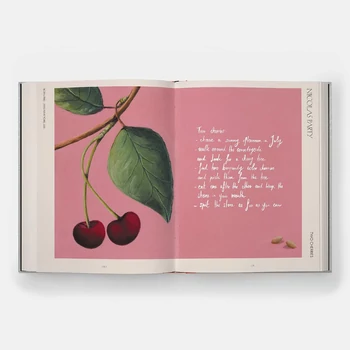 NICOLAS PARTY
Two cherries
- choose a sunny afternoon in July,
walk around the countryside
and look for a cherry tree.
find two burgundy color cherries
and pick them from the tree.
- eat one after the other and keep the
stones in your mouth.
- spit the stones as far as you can.
TWO CHERRIES